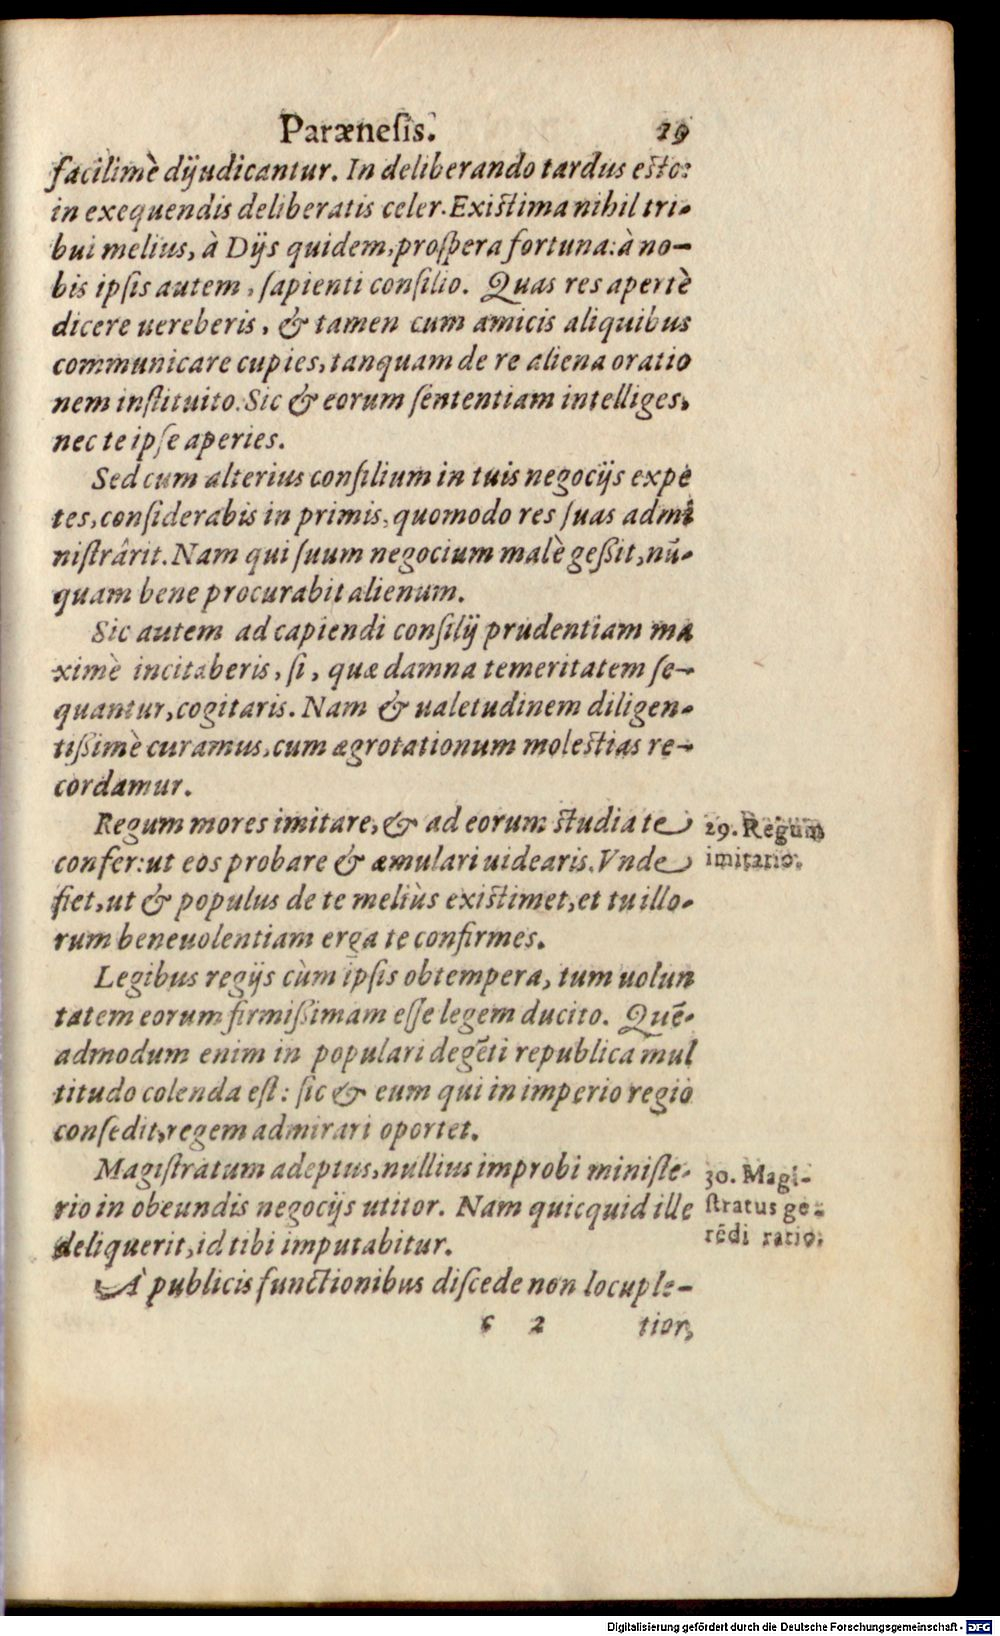 Parænesis. 19
facilimè dijudicantur. In deliberando tardus esto:
in exequendis deliberatis celer. Existima nihil tri-
bui melius, à Dijs quidem, prospera fortuna: à no-
bis ipsis autem, sapienti consilio. Quas res apertè
dicere uereberis, & tamen cum amicis aliquibus
communicare cupies, tanquam de re aliena oratio
nem instituito. Sic & eorum sententiam intelliges,
nec te ipse aperies.
Sed cum alterius consilium in tuis negocijs expe
tes, considerabis in primis, quomodo res suas admi
nistrârit. Nam qui suum negocium malè geßit, nū-
quam bene procurabit alienum.
Sic autem ad capiendi consilij prudentiam ma
ximè incitaberis, si, quæ damna temeritatem se-
quantur, cogitaris. Nam & ualetudinem diligen-
tißimè curamus, cum ægrotationum molestias re-
cordamur.
Regum mores imitare, & ad eorum studia te
confer: ut eos probare & æmulari uidearis. Vnde
fiet, ut & populus de te meliùs existimet, et tu illo-
rum beneuolentiam erga te confirmes.
29. Regum
imitatio.
Legibus regijs cùm ipsis obtempera, tum uolun
tatem eorum firmißimam esse legem ducito. Quē-
admodum enim in populari degēti republica mul
titudo colenda est: sic & eum qui in imperio regio
consedit, regem admirari oportet.
Magistratum adeptus, nullius improbi ministe-
rio in obeundis negocijs utitor. Nam quicquid ille
deliquerit, id tibi imputabitur.
30. Magi-
stratus ge-
rēdi ratio.
À publicis functionibus discede non locuple-
c 2 tior,
Digitalisierung gefördert durch die Deutsche Forschungsgemeinschaft - DFG